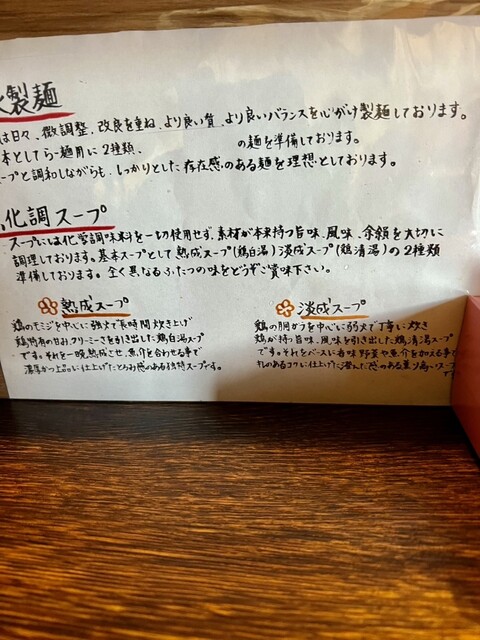 製麺
は日々、微調整、改良を重ね、より良い質、より良いバランスを心がけ製麺しております。
本としてらー麺用に2種類、 の麺を準備しております。
ープと調和しながらも、しっかりとした存在感のある麺を理想としております。
化調スープ
スープには化学調味料を一切使用せず、素材が本来持つ旨味、風味、余韻を大切に
調理しております。基本スープとして熟成スープ(鶏白湯)淡成スープ(鶏清湯)の2種類
準備しております。全く異なるふたつの味をどうぞご賞味下さい。
熟成スープ
鶏のモミジを中心に強火で長時間炊き上げ
鶏特有の甘み、クリーミーさを引き出した鶏白湯スープ
です。それを一晩熟成させ、魚介を合わせる事で
濃厚かつ上品に仕上げたとろみ感のある独特スープです。
淡成スープ
鶏の胴ガラを中心に弱火で丁寧に炊き
鶏が持つ旨味、風味を引き出した鶏清湯スープ
です。それをベースに香味野菜や魚介を加える事で
のあるコクに仕上げた澄んだ感のある薫り高いスープ